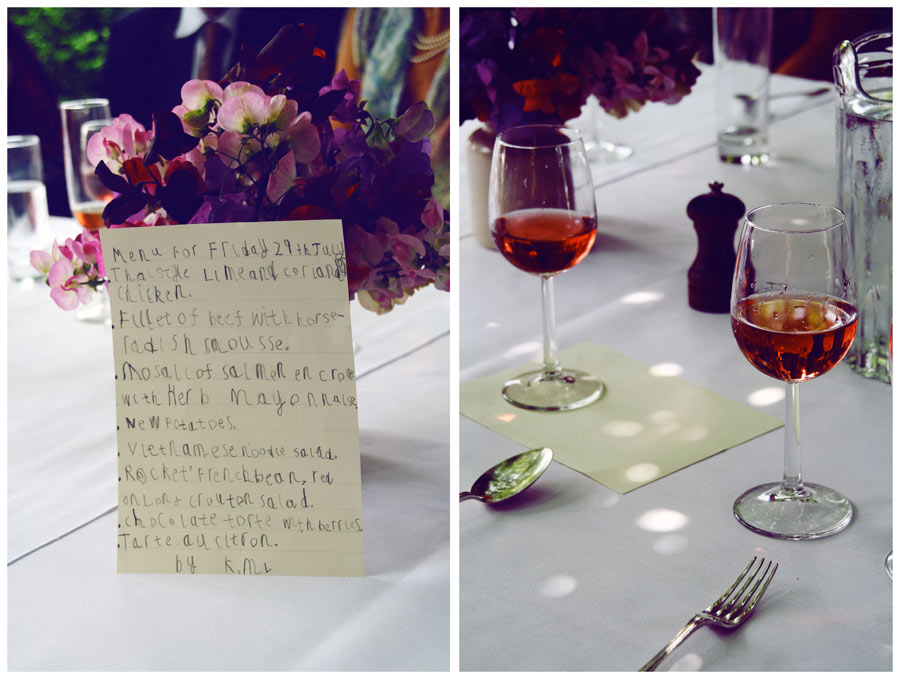 Menu For Friday 29th July
Thaistyle Lime and coriander
chicken.
. Fillet of beef with horse-
radish mousse.
. Mosaic of salmen en croute
with Herb Mayonnaise.
. New Potatoes.
. Vietnamese noodle salad.
. Rocket' French bean, red
onion + crouton salad.
. chocolate torte with berries.
. Tarte. au citron.
by K.ML